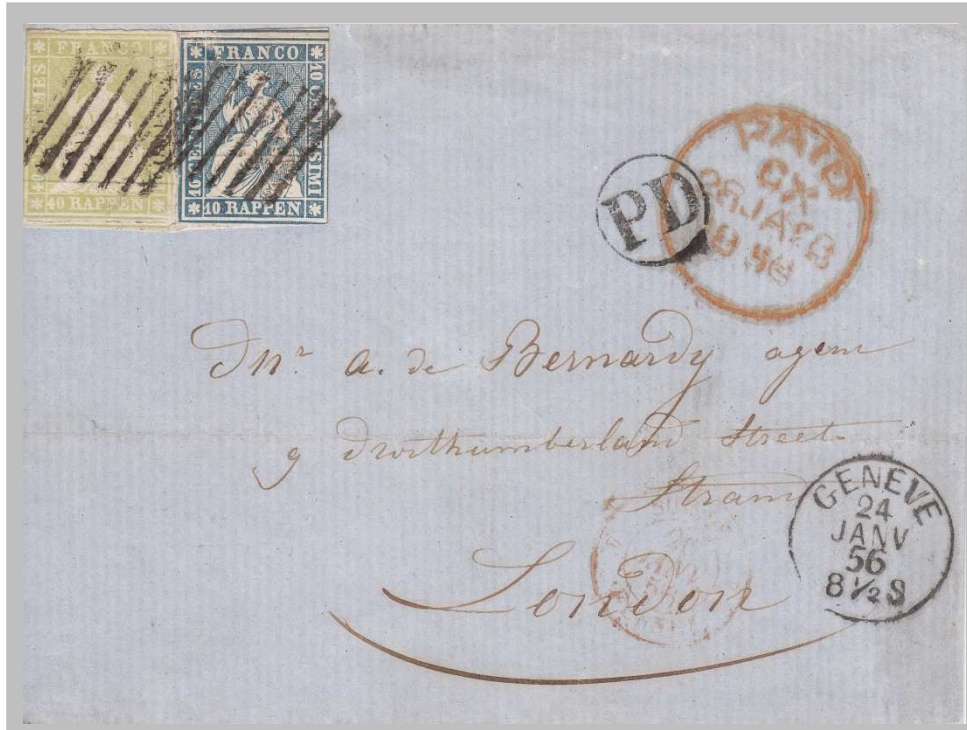 FRANCO
40 RAPPEN
FRANCO
10 CENTIMES
10 CENTESIMI
10 RAPPEN
PD
PAID
CX
28 JA 28
1856
Mr. A. de Bernardy agent
9 Northumberland Street
Strand
London
GENÈVE
24
JANV
56
8 ½ S